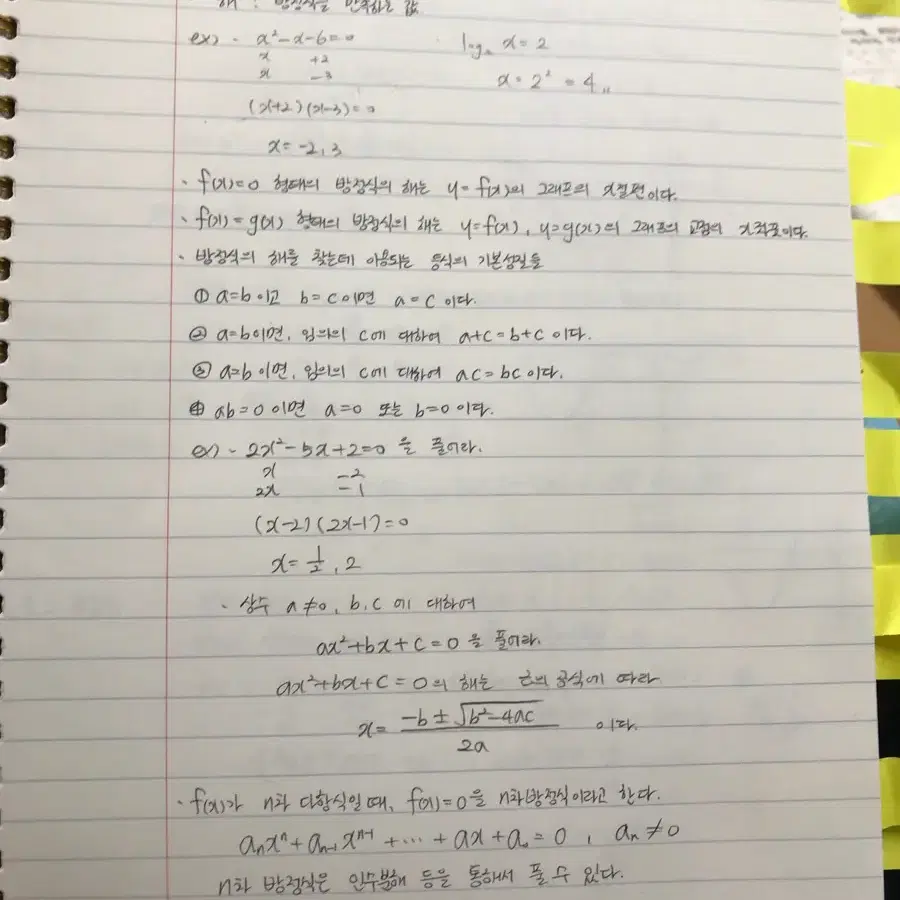 해 : 방정식을 만족하는 값
ex) - x² - x - 6 = 0
x +2
x -3
(x+2)(x-3) = 0
x = -2, 3
x = 2
x = 2² = 4
· f(x)=0 형태의 방정식의 해는 y = f(x)의 그래프의 x절편이다.
· f(x) = g(x) 형태의 방정식의 해는 y=f(x), y=g(x)의 그래프의 교점의 x좌표이다.
· 방정식의 해를 찾는데 이용되는 등식의 기본성질들
① a=b 이고 b=c 이면 a=c 이다.
② a=b 이면, 임의의 c에 대하여 a+c = b+c 이다.
③ a=b 이면, 임의의 c에 대하여 ac = bc 이다.
④ ab=0 이면 a=0 또는 b=0 이다.
ex) - 2x² - 5x + 2 = 0 을 풀어라.
x -2
2x -1
(x-2)(2x-1) = 0
x = 1/2, 2
· 상수 a≠0, b, c 에 대하여
ax² + bx + c = 0 을 풀어라.
ax² + bx + c = 0 의 해는 근의 공식에 따라
x = (-b ± √(b²-4ac))/2a 이다.
· f(x)가 n차 다항식일 때, f(x)=0을 n차방정식이라고 한다.
aₙxⁿ + aₙ₋₁xⁿ⁻¹ + ··· + ax + a₀ = 0, aₙ ≠ 0
n차 방정식은 인수분해 등을 통해서 풀 수 있다.